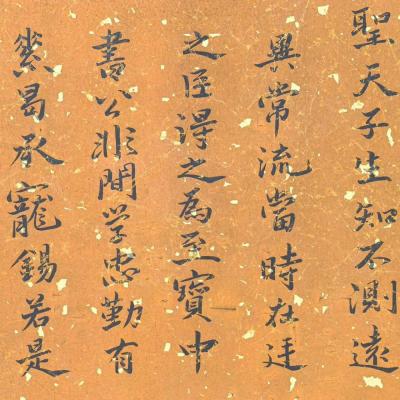 聖天子生知不測遠
異常流當時在廷
之臣得之為至寶中
書公非問學忠勤有
素曷承寵錫若是